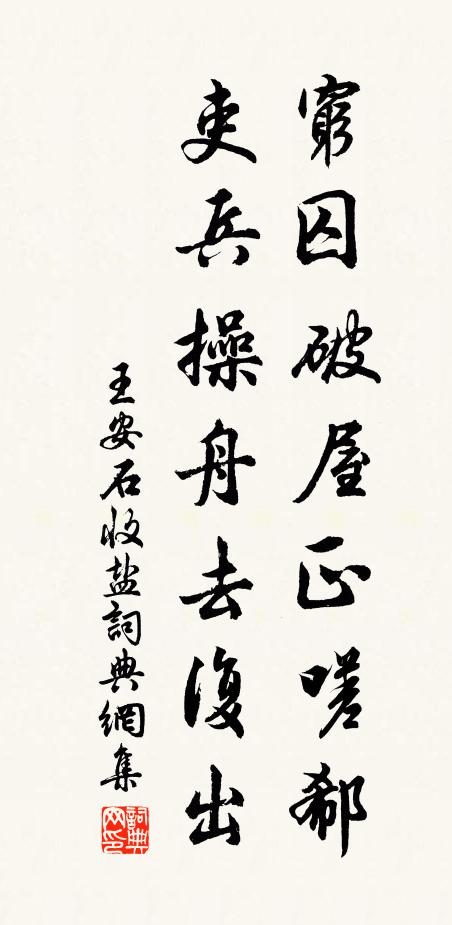 窮囚破屋正嗟郗
吏兵操舟去復出
王安石收盐詞典網集
詞典网印